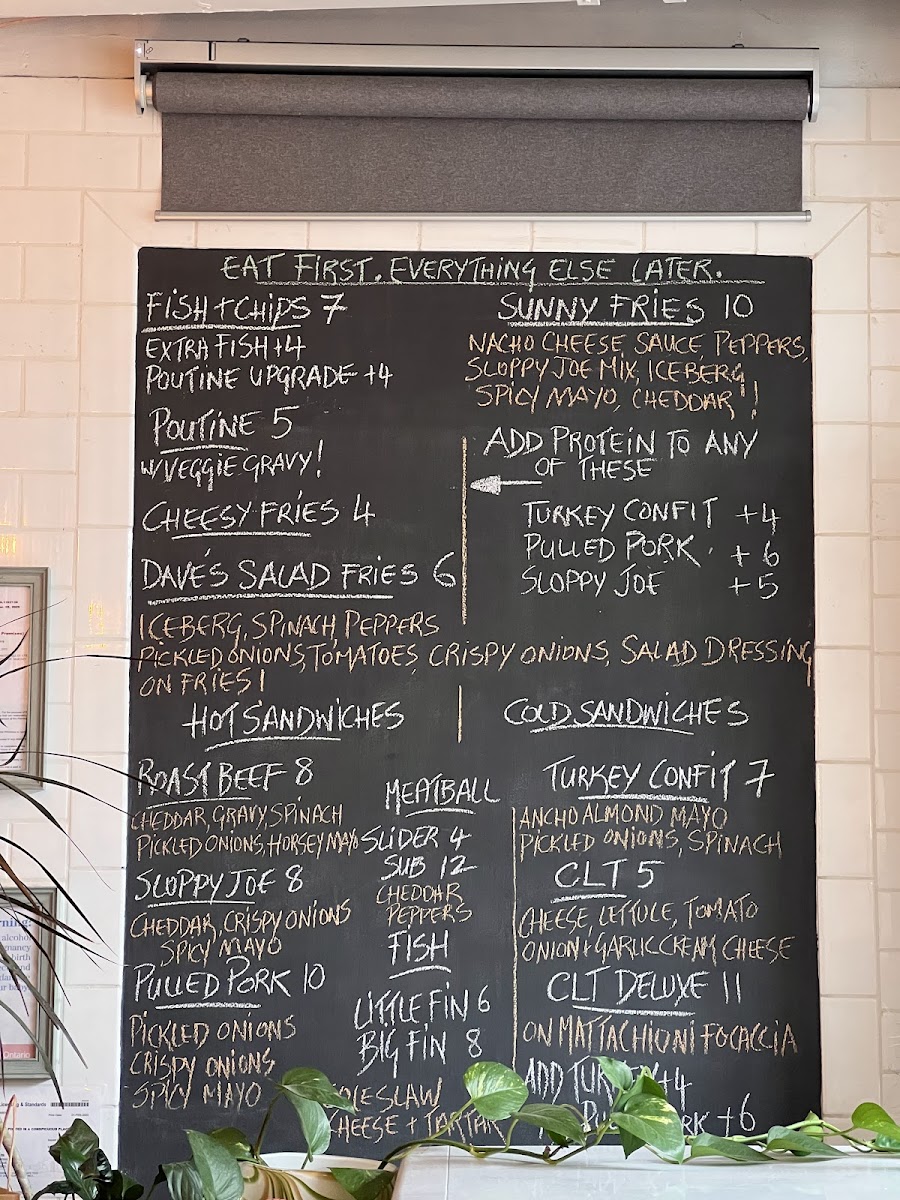 EAT FIRST. EVERYTHING ELSE LATER.
FISH + CHIPS 7
EXTRA FISH +4
POUTINE UPGRADE +4
POUTINE 5
W/ VEGGIE GRAVY!
CHEESY FRIES 4
DAVE'S SALAD FRIES 6
ICEBERG, SPINACH, PEPPERS
PICKLED ONIONS, TOMATOES, CRISPY ONIONS, SALAD DRESSING
ON FRIES!
SUNNY FRIES 10
NACHO CHEESE SAUCE, PEPPERS,
SLOPPY JOE MIX, ICEBERG
SPICY MAYO, CHEDDAR!!
ADD PROTEIN TO ANY
OF THESE
TURKEY CONFIT +4
PULLED PORK +6
SLOPPY JOE +5
HOT SANDWICHES
ROAST BEEF 8
CHEDDAR, GRAVY, SPINACH
PICKLED ONIONS, HORSEY MAYO
SLOPPY JOE 8
CHEDDAR, CRISPY ONIONS
SPICY MAYO
PULLED PORK 10
PICKLED ONIONS
CRISPY ONIONS
SPICY MAYO
MEATBALL
SLIDER 4
SUB 12
CHEDDAR
PEPPERS
FISH
LITTLE FIN 6
BIG FIN 8
COLESLAW
CHEESE + TARTAR
COLD SANDWICHES
TURKEY CONFIT 7
ANCHO ALMOND MAYO
PICKLED ONIONS, SPINACH
CLT 5
CHEESE, LETTUCE, TOMATO
ONION & GARLIC CREAM CHEESE
CLT DELUXE 11
ON MATTACHIONI FOCACCIA
ADD TURKEY +4
+6
Ontario